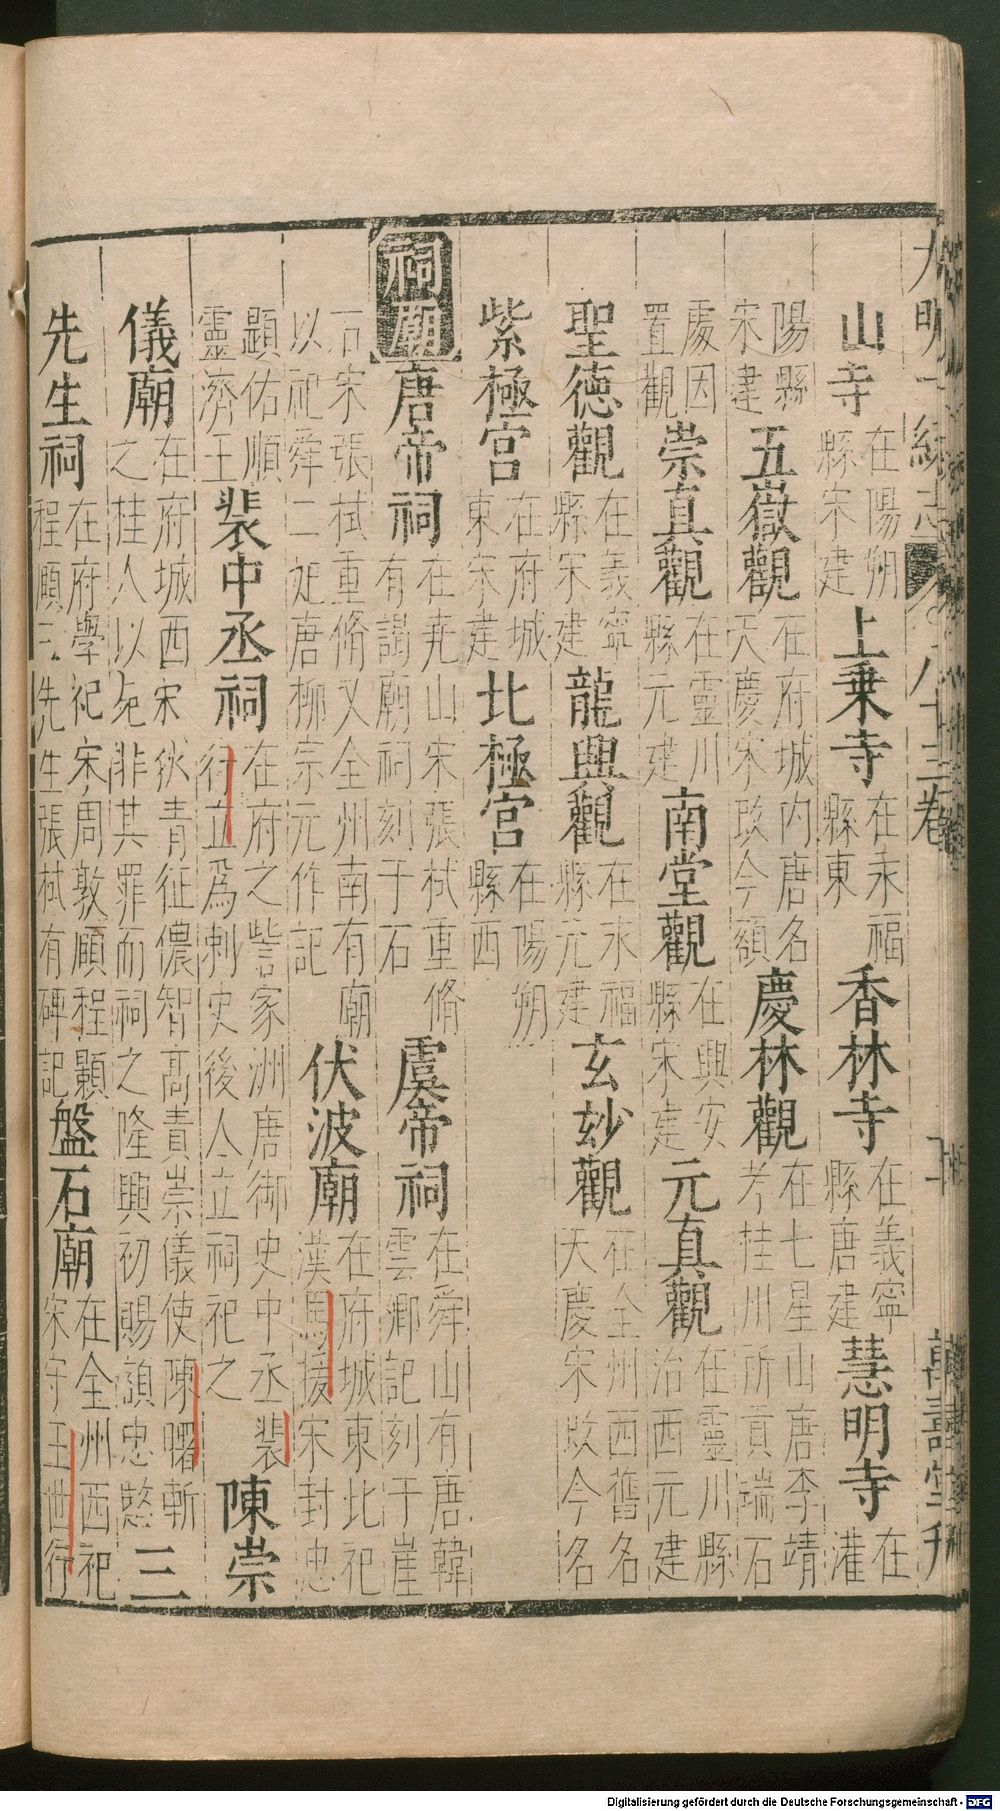 大明一統志 八十三卷 十 萬壽堂刋
山寺在陽朔縣宋建 上乗寺在永福縣東 香林寺在義寧縣唐建 慧明寺在灌
陽縣宋建 五嶽觀在府城内唐名天慶宋改今額 慶林觀在七星山唐李靖考桂川所貢瑞石
處因置觀 崇真觀在靈川縣元建 南堂觀在興安縣宋建 元真觀在靈川縣治西元建
聖德觀在義寧縣宋建 龍興觀在永福縣元建 玄妙觀在全州西舊名天慶宋改今名
紫極宮在府城東宋建 北極宮在陽朔縣西
祠廟 唐帝祠在尭山宋張栻重脩有謁廟祠刻于石 虞帝祠在舜山有唐韓雲卿記刻于崖
石宋張栻重脩又全州南有廟以祀舜二妃唐柳宗元作記 伏波廟在府城東北祀漢馬援宋封忠
顯佑順靈濟王 裴中丞祠在府之訾家洲唐御史中丞裴行立爲刺史後人立祠祀之 陳崇
儀廟在府城西宋狄青征儂智高責崇儀使陳曙斬之桂人以死非其罪而祠之隆興初賜額忠愍 三
先生祠在府學祀宋周敦頤程顥程頤三先生張栻有碑記 盤石廟在全州西祀宋守王世行
Digitalisierung gefördert durch die Deutsche Forschungsgemeinschaft - DFG